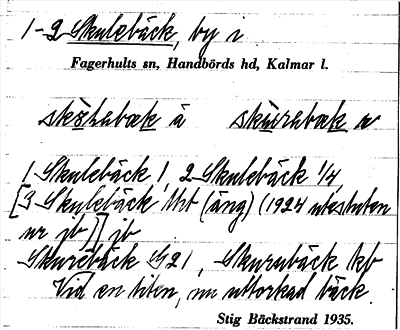 1-2 Skulebäck, by i
Fagerhults sn, Handbörds hd, Kalmar l.
1 Skulebäck 1, 2 Skulebäck 1/4,
[3 Skulebäck Utb (äng) (1924 utesluten
ur jb)] jb
Skurebäck 21, Skurubäck kb
Vid en liten, nu uttorkad bäck.
Stig Bäckstrand 1935.